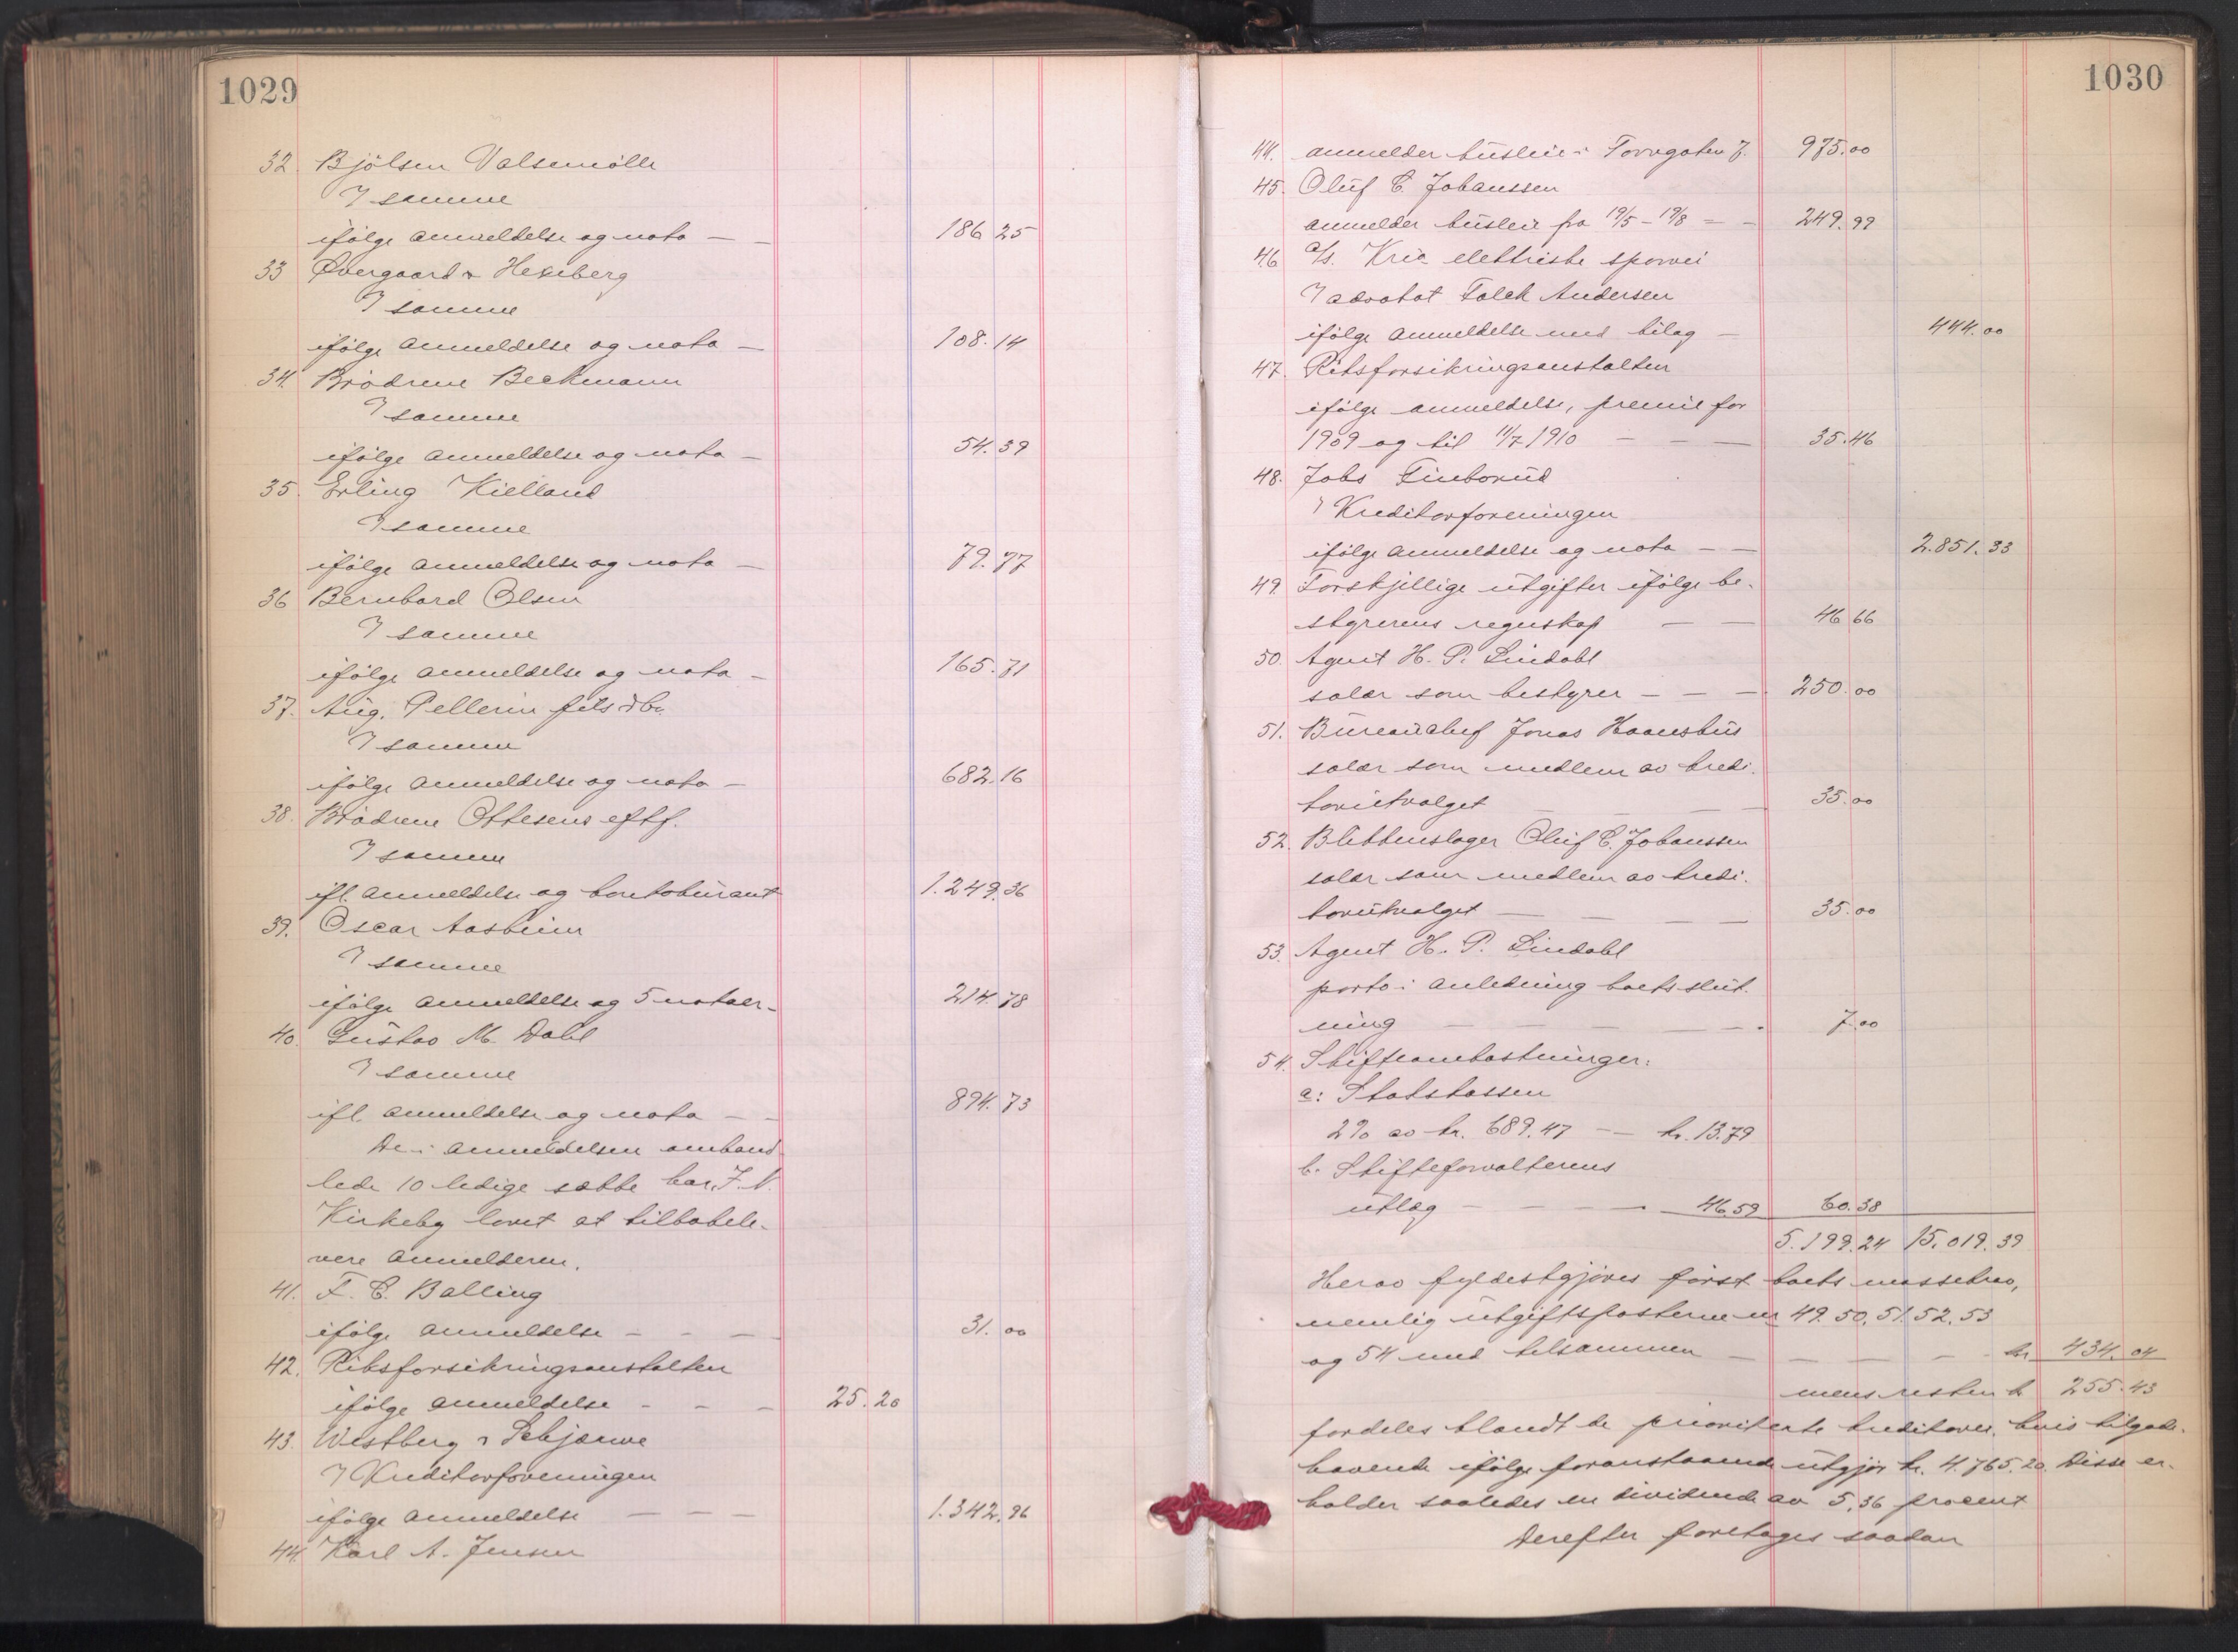 1029
32. Bjølsen Valsemølle
⅂ samme
ifølge anmeldelse og nota — — 186 25
33 Overgaard & Hexeberg
⅂ samme
ifølge anmeldelse og nota — 108.14
34. Brødrene Beckmann
⅂ samme
ifølge anmeldelse og nota — 54.39
35. Erling Kielland
⅂ samme
ifølge anmeldelse og nota — 79.77
36 Bernhard Olsen
⅂ samme
ifølge anmeldelse og nota — 165.71
37. Aug. Pellerin fils & Co.
⅂ samme
ifølge anmeldelse og nota — 682.16
38. Brødrene Ottesens eftf.
⅂ samme
ifl. anmeldelse og kontokurant 1.249.36
39. Oscar Aasheim
⅂ samme
ifølge anmeldelse og 5 notaer — 214.78
40. Gustav M. Dahl
⅂ samme
ifl. anmeldelse og nota — — 894.73
De i anmeldelsen omhand-
lede 10 ledige sække har J. N.
Kirkeby lovet at tilbakele-
vere anmelderen.
41. F. C. Balling
ifølge anmeldelse — — — 31.00
42. Riksforsikringsanstalten
ifølge anmeldelse — — — 25.20
43. Westberg & Schjærve
⅂ Kreditorforeningen
ifølge anmeldelse — — — 1.342.96
44. Karl A. Jensen
1030
44. anmelder husleie i Torvgaten 7. 975.00
45. Oluf C. Johanssen
anmelder husleie fra 19/5 – 19/8 — — 249.99
46 A/s. Kria elektriske sporvei
⅂ advokat Falck Andersen
ifølge anmeldelse med bilag — 444.00
47. Riksforsikringsanstalten
ifølge anmeldelse, premie for
1909 og til 11/7 1910 — — — 35.46
48. Jobs Finborud
⅂ Kreditorforeningen
ifølge anmeldelse og nota — — 2.851.33
49. Forskjellige utgifter ifølge be-
styrerens regnskap — — 46 66
50. Agent H. P. Lindahl
salær som bestyrer — — — 250.00
51. Bureauchef Jonas Haanshus
salær som medlem av kredi-
torutvalget — — — 35.00
52. Blikkenslager Oluf C. Johanssen
salær som medlem av kredi-
torutvalget — — — 35.00
53. Agent H. P. Lindahl
porto i anledning boets slut-
ning — — — — 7.00
54. Skifteomkostninger:
a: Statskassen
2% av kr. 689.47 — — kr. 13.79
b. Skifteforvalterens
utlæg — — — — 46.59 60.38
5.199.24 15.019.39
Herav fyldestgjøres først boets massekrav,
nemlig utgiftsposterne nr 49. 50. 51. 52. 53
og 54 med tilsammen — — — — kr 434.04
mens resten kr 255.43
fordeles blandt de prioriterte kreditorer, hvis tilgode-
havende ifølge foranstaaende utgjør kr. 4.765.20. Disse er-
holder saaledes en dividende av 5,36 procent
Derefter foretages saadan